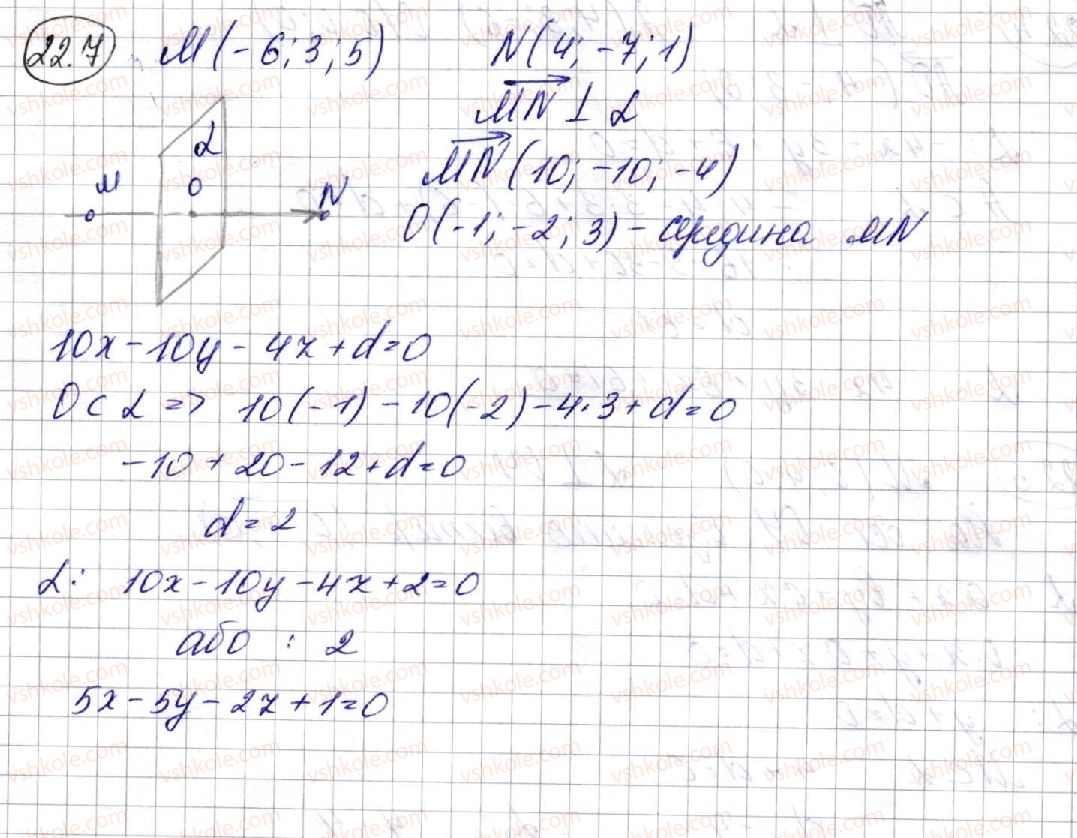 22.7 M(-6; 3; 5) N(4; -7; 1)
MN ⊥ α
MN(10; -10; -4)
O(-1; -2; 3) - середина MN
α
M O N
10x - 10y - 4z + d = 0
O ⊂ α => 10(-1) - 10(-2) - 4·3 + d = 0
-10 + 20 - 12 + d = 0
d = 2
α: 10x - 10y - 4z + 2 = 0
або : 2
5x - 5y - 2z + 1 = 0
vshkole.com